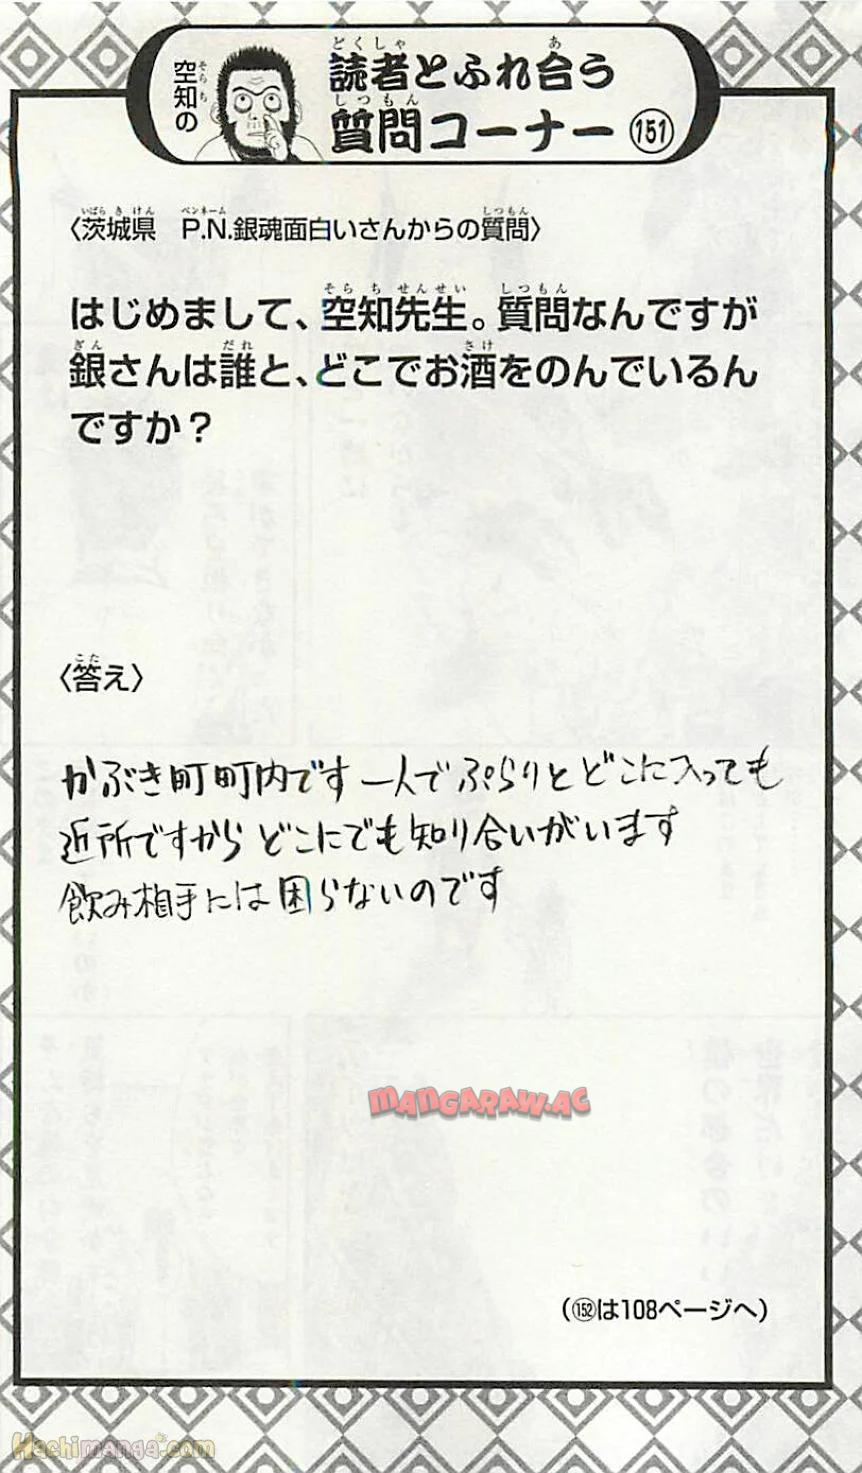 空知の
読者とふれ合う
質問コーナー 151
〈茨城県 P.N.銀魂面白いさんからの質問〉
はじめまして、空知先生。質問なんですが
銀さんは誰と、どこでお酒をのんでいるん
ですか？
〈答え〉
かぶき町町内です 一人でぷらりとどこに入っても
近所ですから どこにでも知り合いがいます
飲み相手には困らないのです
MANGARAW.AC
（152は108ページへ）
Hachimanga.com